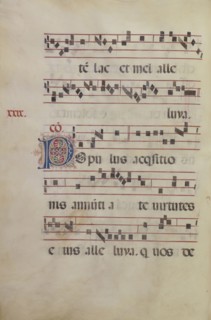 tē lac et mel alle
luya.
xxx.
cō
Popu lus acqsitio
nis annūti a te virtutes
e ius alle luya. q uos de